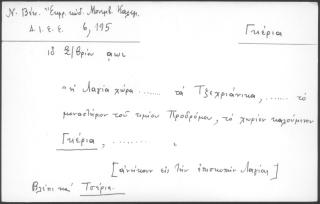 Ν. Βέη. "Εκφρ. κώδ. Μονμβ. Καλαμ.
Δ. Ι. Ε. Ε. 6, 195
Γκέρια
ιδ Σ/βρίου αωι
"ἡ Λαγία χώρα ........ τὰ Τζεχριάνικα, ...... τὸ
μοναστήριον τοῦ τιμίου Προδρόμου, τὸ χωρίον καλούμενον
Γκέρια, ......... ,
[ἀνήκουν εἰς τὴν ἐπισκοπὴν Λαγίας]
Βλέπε καὶ Τσέρια.